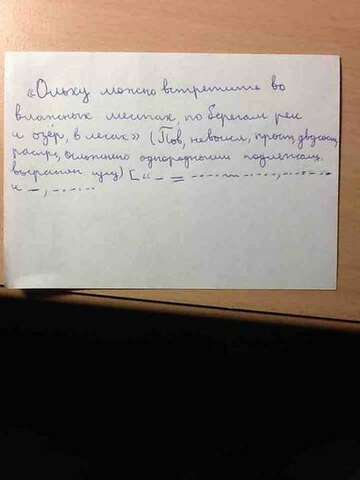 «Ольху можно встретить во
влажных местах, по берегам рек
и озёр, в лесах» (Пов, невоскл, прост, двусост,
распр, осложнено однородными подлежащ.
выражен сущ) [«
и